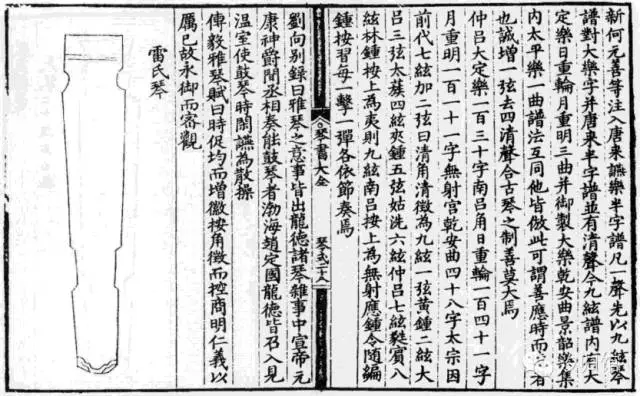 新何元善等注入唐来讌樂半字譜凡一聲先以九絃琴
譜對大樂字并唐来半字譜並有清聲今九絃譜内有大
定樂日重輪月重明三曲并御製大樂乾安曲景韶樂集
内太平樂一曲譜法互同他皆倣此可謂善應時而
也誠增一弦去四清聲合古琴之制善莫大焉
仲吕大定樂一百三十字南吕角日重輪一百四十一字
月重明一百一十一字無射宫乾安曲四十八字太宗因
前代七絃加二弦曰清角清徵為九絃一弦黄鍾二絃大
吕三弦太蔟四絃夾鍾五弦姑洗六絃仲吕七絃蕤賓八
絃林鍾按上為夷則九絃南吕按上為無射應鍾令隨編
鍾按習每一擊一彈各依節奏焉
琴書大全
琴式二十八
劉向别録曰雅琴之意事皆出龍德諸琴雜事中宣帝元
康神爵間丞相奏能鼓琴者渤海趙定國龍德皆召入見
温室使鼓琴時閒讌為散操
傅毅雅琴賦曰時促均而增徽按角徵而控商明仁義以
厲已故永御而宻觀
雷氏琴